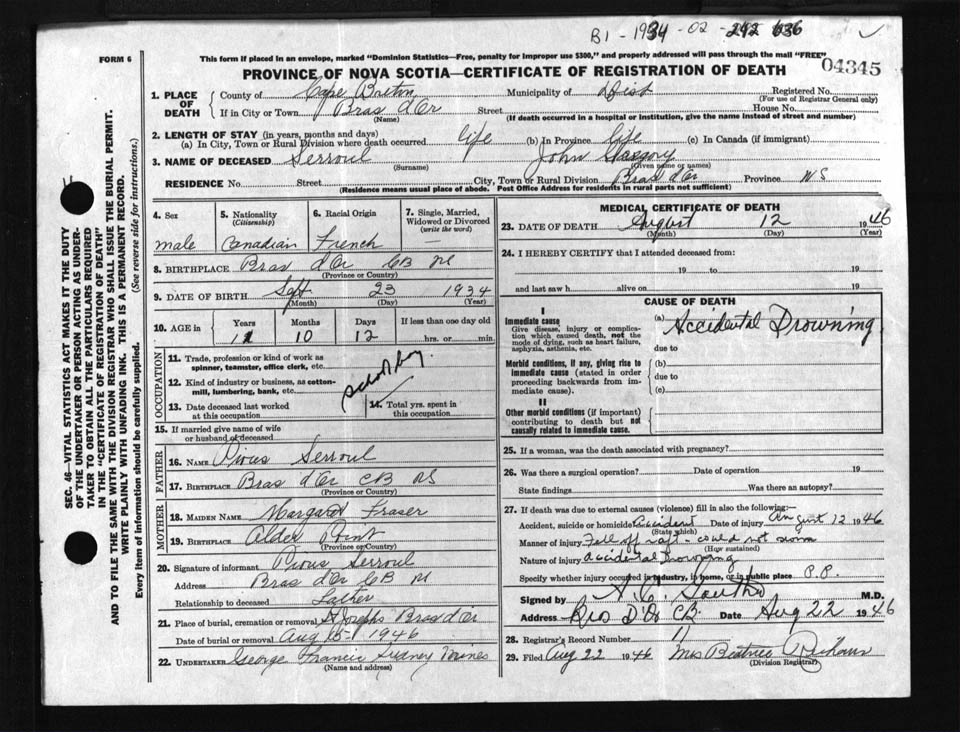 B1 - 1934 - 02 - 242 636
04345
FORM 6
This form if placed in an envelope, marked "Dominion Statistics—Free, penalty for improper use $300," and properly addressed will pass through the mail "FREE"
PROVINCE OF NOVA SCOTIA—CERTIFICATE OF REGISTRATION OF DEATH
SEC. 46—VITAL STATISTICS ACT MAKES IT THE DUTY
OF THE UNDERTAKER OR PERSON ACTING AS UNDER-
TAKER TO OBTAIN ALL THE PARTICULARS REQUIRED
IN THE "CERTIFICATE OF REGISTRATION OF DEATH"
AND TO FILE THE SAME WITH THE DIVISION REGISTRAR WHO SHALL ISSUE THE BURIAL PERMIT.
WRITE PLAINLY WITH UNFADING INK. THIS IS A PERMANENT RECORD.
Every item of information should be carefully supplied. (See reverse side for instructions.)
1. PLACE OF DEATH
County of Cape Breton Municipality of Registered No.
(For use of Registrar General only)
If in City or Town Bras d'Or Street House No.
(Name) (If death occurred in a hospital or institution, give the name instead of street and number)
2. LENGTH OF STAY (in years, months and days)
(a) In City, Town or Rural Division where death occurred life (b) In Province life (c) In Canada (if immigrant)
3. NAME OF DECEASED Serroul John Gregory
(Surname) (Given name or names)
RESIDENCE No. Street City, Town or Rural Division Bras d'Or Province NS
(Residence means usual place of abode. Post Office Address for residents in rural parts not sufficient)
4. Sex
male
5. Nationality
(Citizenship)
Canadian
6. Racial Origin
French
7. Single, Married, Widowed or Divorced
(write the word)
—
8. BIRTHPLACE Bras d'Or CB NS
(Province or Country)
9. DATE OF BIRTH Sept 23 1934
(Month) (Day) (Year)
10. AGE in
Years Months Days If less than one day old
11 10 12 hrs. or min.
OCCUPATION
11. Trade, profession or kind of work as
spinner, teamster, office clerk, etc.
12. Kind of industry or business, as cotton-
mill, lumbering, bank, etc.
School boy
13. Date deceased last worked
at this occupation
14. Total yrs. spent in
this occupation
15. If married give name of wife
or husband of deceased
FATHER
16. NAME Pious Serroul
17. BIRTHPLACE Bras d'Or CB NS
(Province or Country)
MOTHER
18. MAIDEN NAME Margaret Fraser
19. BIRTHPLACE Alder Point
(Province or Country)
20. Signature of informant Pious Serroul
Address Bras d'Or CB NS
Relationship to deceased Father
21. Place of burial, cremation or removal St Josephs Bras d'Or
Date of burial or removal Aug 15 1946
22. UNDERTAKER George Francis Sydney Mines
(Name and address)
MEDICAL CERTIFICATE OF DEATH
23. DATE OF DEATH August 12 1946
(Month) (Day) (Year)
24. I HEREBY CERTIFY that I attended deceased from:
19 to 19
and last saw h alive on 19
CAUSE OF DEATH
I
Immediate cause
Give disease, injury or complica-
tion which caused death, not the
mode of dying, such as heart failure,
asphyxia, asthenia, etc.
(a) Accidental Drowning
due to
Morbid conditions, if any, giving rise to
immediate cause (stated in order
proceeding backwards from im-
mediate cause).
(b)
due to
(c)
II
Other morbid conditions (if important)
contributing to death but not
causally related to immediate cause.
25. If a woman, was the death associated with pregnancy?
26. Was there a surgical operation? Date of operation 19
State findings Was there an autopsy?
27. If death was due to external causes (violence) fill in also the following:—
Accident, suicide or homicide Accident Date of injury August 12 1946
(State which)
Manner of injury Fell off raft - could not swim
(How sustained)
Nature of injury Accidental Drowning
Specify whether injury occurred in industry, in home, or in public place P.P.
Signed by M.D.
Address Bras D'Or CB Date Aug 22 1946
28. Registrar's Record Number 11
29. Filed Aug 22 1946 Mrs Beatrice
(Division Registrar)